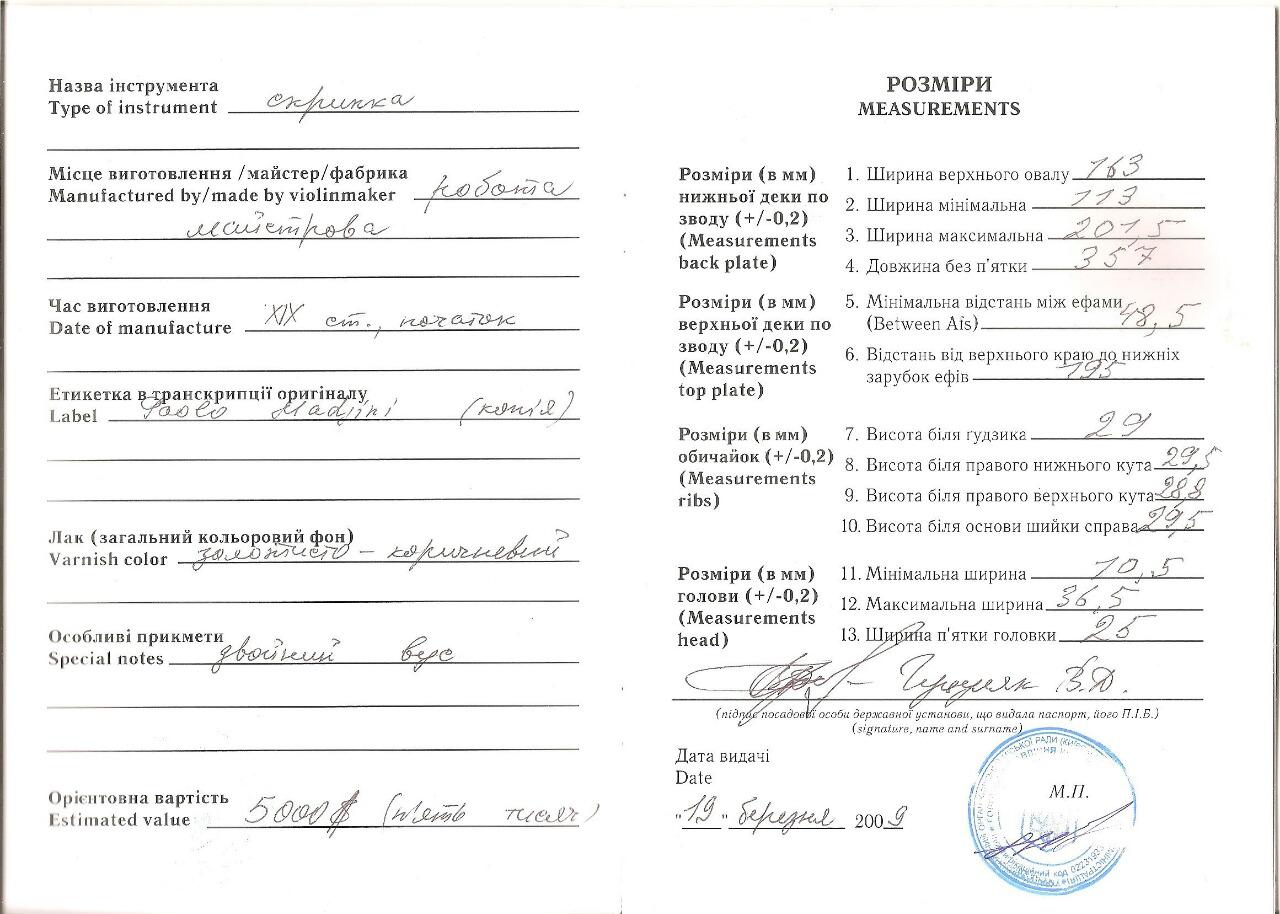 Назва інструмента
Type of instrument скрипка
Місце виготовлення /майстер/фабрика
Manufactured by/made by violinmaker робота
майстрова
Час виготовлення
Date of manufacture XIX ст., початок
Етикетка в транскрипції оригіналу
Label Paolo Madjini (копія)
Лак (загальний кольоровий фон)
Varnish color золотисто – коричневий
Особливі прикмети
Special notes двойний вус
Орієнтовна вартість
Estimated value 5000$ (п'ять тисяч)
РОЗМІРИ
MEASUREMENTS
Розміри (в мм)
нижньої деки по
зводу (+/-0,2)
(Measurements
back plate)
1. Ширина верхнього овалу 163
2. Ширина мінімальна 113
3. Ширина максимальна 201,5
4. Довжина без п'ятки 357
Розміри (в мм)
верхньої деки по
зводу (+/-0,2)
(Measurements
top plate)
5. Мінімальна відстань між ефами
(Between Afs) 48,5
6. Відстань від верхнього краю до нижніх
зарубок ефів 195
Розміри (в мм)
обичайок (+/-0,2)
(Measurements
ribs)
7. Висота біля ґудзика 29
8. Висота біля правого нижнього кута 29,5
9. Висота біля правого верхнього кута 28,8
10. Висота біля основи шийки справа 29,5
Розміри (в мм)
голови (+/-0,2)
(Measurements
head)
11. Мінімальна ширина 10,5
12. Максимальна ширина 36,5
13. Ширина п'ятки головки 25
В.Д.
(підпис посадової особи державної установи, що видала паспорт, його П.І.Б.)
(signature, name and surname)
Дата видачі
Date
"19" березня 2009
М.П.